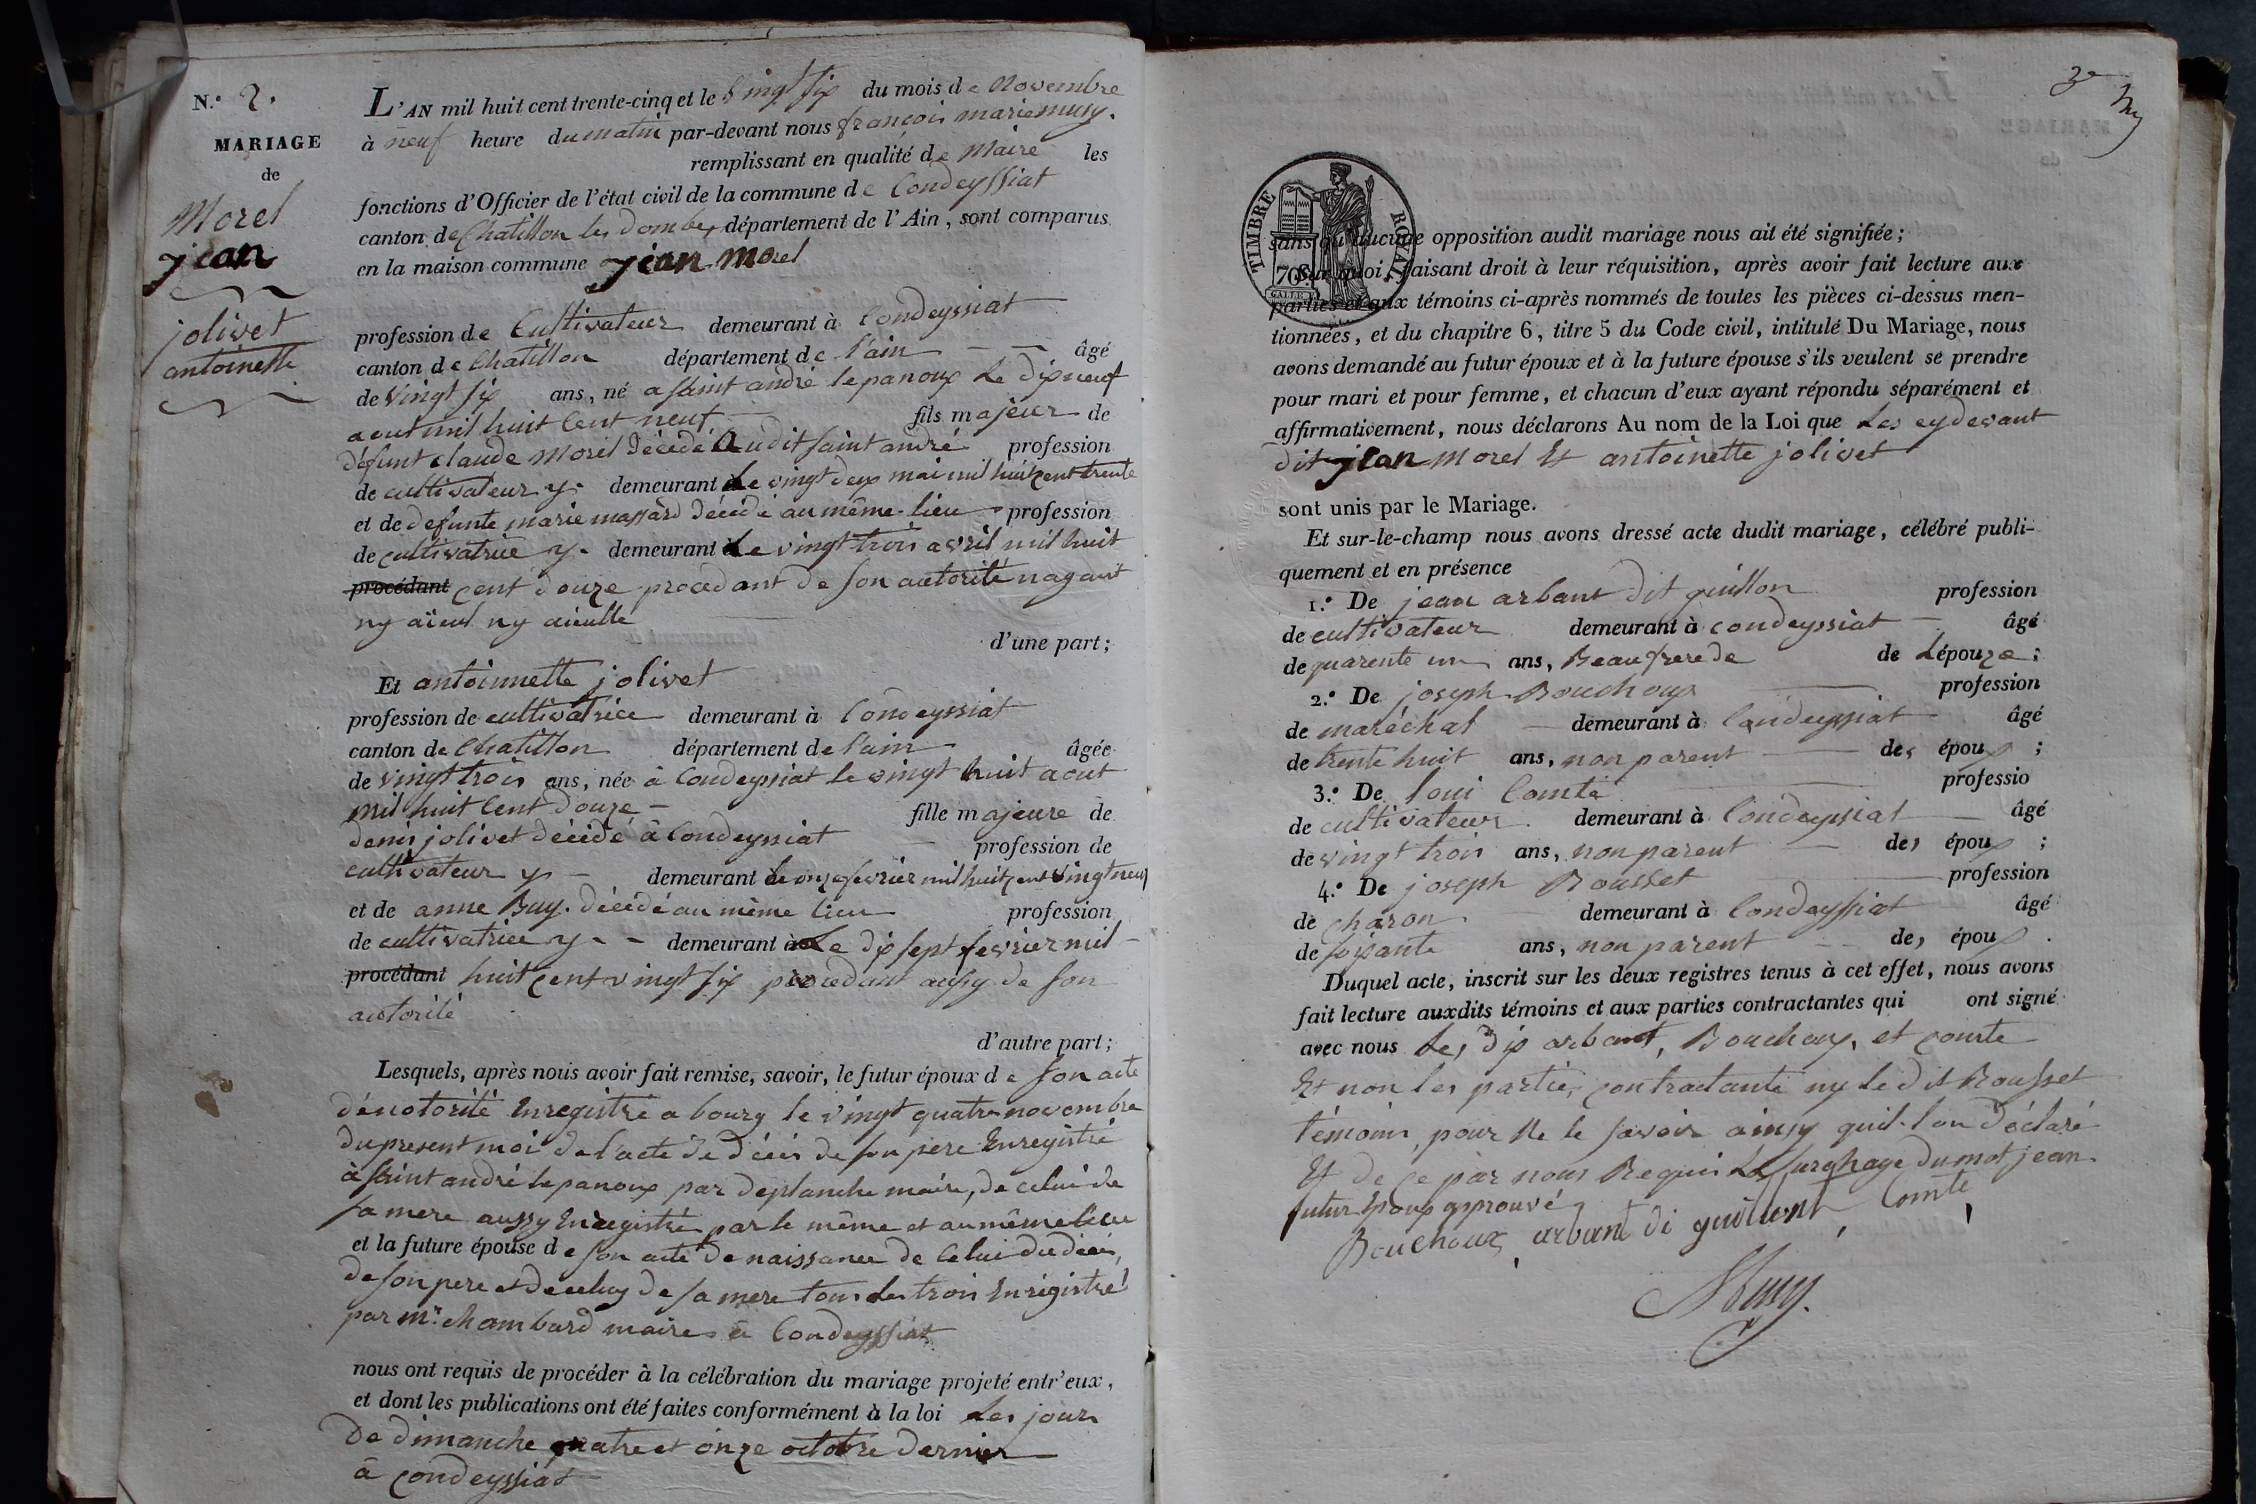 N.º 2.
MARIAGE
de
Morel
jean
jolivet
antoinette
L'AN mil huit cent trente-cinq et le vingt six du mois de Novembre
à neuf heure du matin par-devant nous françois marie musy.
remplissant en qualité de Maire les
fonctions d'Officier de l'état civil de la commune de Condeyssiat
canton de Chatillon les Dombes, département de l'Ain, sont comparus
en la maison commune jean morel
profession de Cultivateur demeurant à Condeyssiat
canton de Chatillon département de l'ain âgé
de vingt six ans, né a saint andré lepanoux Le dix neuf
aout mil huit Cent neuf fils majeur de
défunt claude morel décédé audit saint andré profession
de cultivateur y. demeurant Le vingt deux mai mil huit cent trente
et de defunte marie massard décédé au même lieu profession
de cultivatrice y. demeurant Le vingt trois avril mil huit
procédant cent douze procedant de son autorité nayant
ny aïeul ny aieulle
d'une part;
Et antoinnette jolivet
profession de cultivatrice demeurant à Condeyssiat
canton de Chatillon département de l'ain âgée
de vingt trois ans, née à Condeyssiat le vingt huit aout
mil huit Cent douze fille majeure de
denis jolivet décédé à Condeyssiat profession de
cultivateur y demeurant Le onze fevrier mil huit cent vingt neuf
et de anne Buy. décédé au même lieu profession
de cultivatrice y. demeurant à Le dix sept fevrier mil
procédant huit cent vingt six procedant aussy de son
autorité
d'autre part;
Lesquels, après nous avoir fait remise, savoir, le futur époux de son acte
dénotorité Enregistré a bourg le vingt quatre novembre
du present moi de l'acte de décès de son père Enregistré
à saint andré lepanoux par deplanche maire, de celui de
sa mere aussy Enregistré par le même et au même lieu
et la future épouse de son acte de naissance de Celui du décès
de son pere et de celuy de sa mere tous les trois Enrégistré
par mr chambard maire à Condeyssiat
nous ont requis de procéder à la célébration du mariage projeté entr'eux,
et dont les publications ont été faites conformément à la loi Les jours
De dimanche quatre et onze octobre dernier
à condeyssiat
3e
TIMBRE ROYAL
70
sans qu'aucune opposition audit mariage nous ait été signifiée;
Sur quoi, faisant droit à leur réquisition, après avoir fait lecture aux
parties et aux témoins ci-après nommés de toutes les pièces ci-dessus men-
tionnées, et du chapitre 6, titre 5 du Code civil, intitulé Du Mariage, nous
avons demandé au futur époux et à la future épouse s'ils veulent se prendre
pour mari et pour femme, et chacun d'eux ayant répondu séparément et
affirmativement, nous déclarons Au nom de la Loi que Les cydevant
dit jean morel Et antoinette jolivet
sont unis par le Mariage.
Et sur-le-champ nous avons dressé acte dudit mariage, célébré publi-
quement et en présence
1.º De jean arbant dit guillon profession
de cultivateur demeurant à condeyssiat âgé
de quarente un ans, Beaufrere de de Lépouze;
2.º De joseph Bouchoux profession
de maréchal demeurant à Condeyssiat âgé
de trente huit ans, non parent des époux;
3.º De loui Comte professio
de cultivateur demeurant à Condeyssiat âgé
de vingt trois ans, non parent des époux;
4.º De joseph Rousset profession
de charon demeurant à Condeyssiat âgé
de soixante ans, non parent des époux.
Duquel acte, inscrit sur les deux registres tenus à cet effet, nous avons
fait lecture auxdits témoins et aux parties contractantes qui ont signé
avec nous Les dix arbant, Bouchoux, et comte
Et non les parties contractante ny le dit Rousset
témoins, pour Ne le savoir ainsy quil l'on déclaré
Et de ce par nous Requis La surchage du mot jean
futur Epoux approuvé
Bouchoux, arbant di guillont, Comte,
Musy.